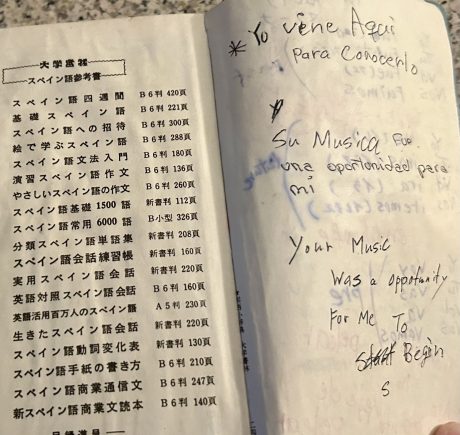 大学書林
スペイン語参考書
スペイン語四週間 B6判 420頁
基礎スペイン語 B6判 221頁
スペイン語への招待 B6判 300頁
絵で学ぶスペイン語 B6判 288頁
スペイン語文法入門 B6判 180頁
演習スペイン語作文 B6判 136頁
やさしいスペイン語の作文 B6判 260頁
スペイン語基礎1500語 新書判 112頁
スペイン語常用6000語 B小型 326頁
分類スペイン語単語集 新書判 208頁
スペイン語会話練習帳 新書判 160頁
実用スペイン語会話 新書判 220頁
英語対照スペイン語会話 B6判 160頁
英語活用百万人のスペイン語 A5判 230頁
生きたスペイン語会話 新書判 220頁
スペイン語動詞変化表 新書判 130頁
スペイン語手紙の書き方 B6判 210頁
スペイン語商業通信文 B6判 247頁
新スペイン語商業文読本 B6判 140頁
*Yo viene Aquí
Para Conocerlo
Su Musica Fue
una oportonidad para
mi
Your Music
Was a oppotunity
For Me To
Start Begin
S